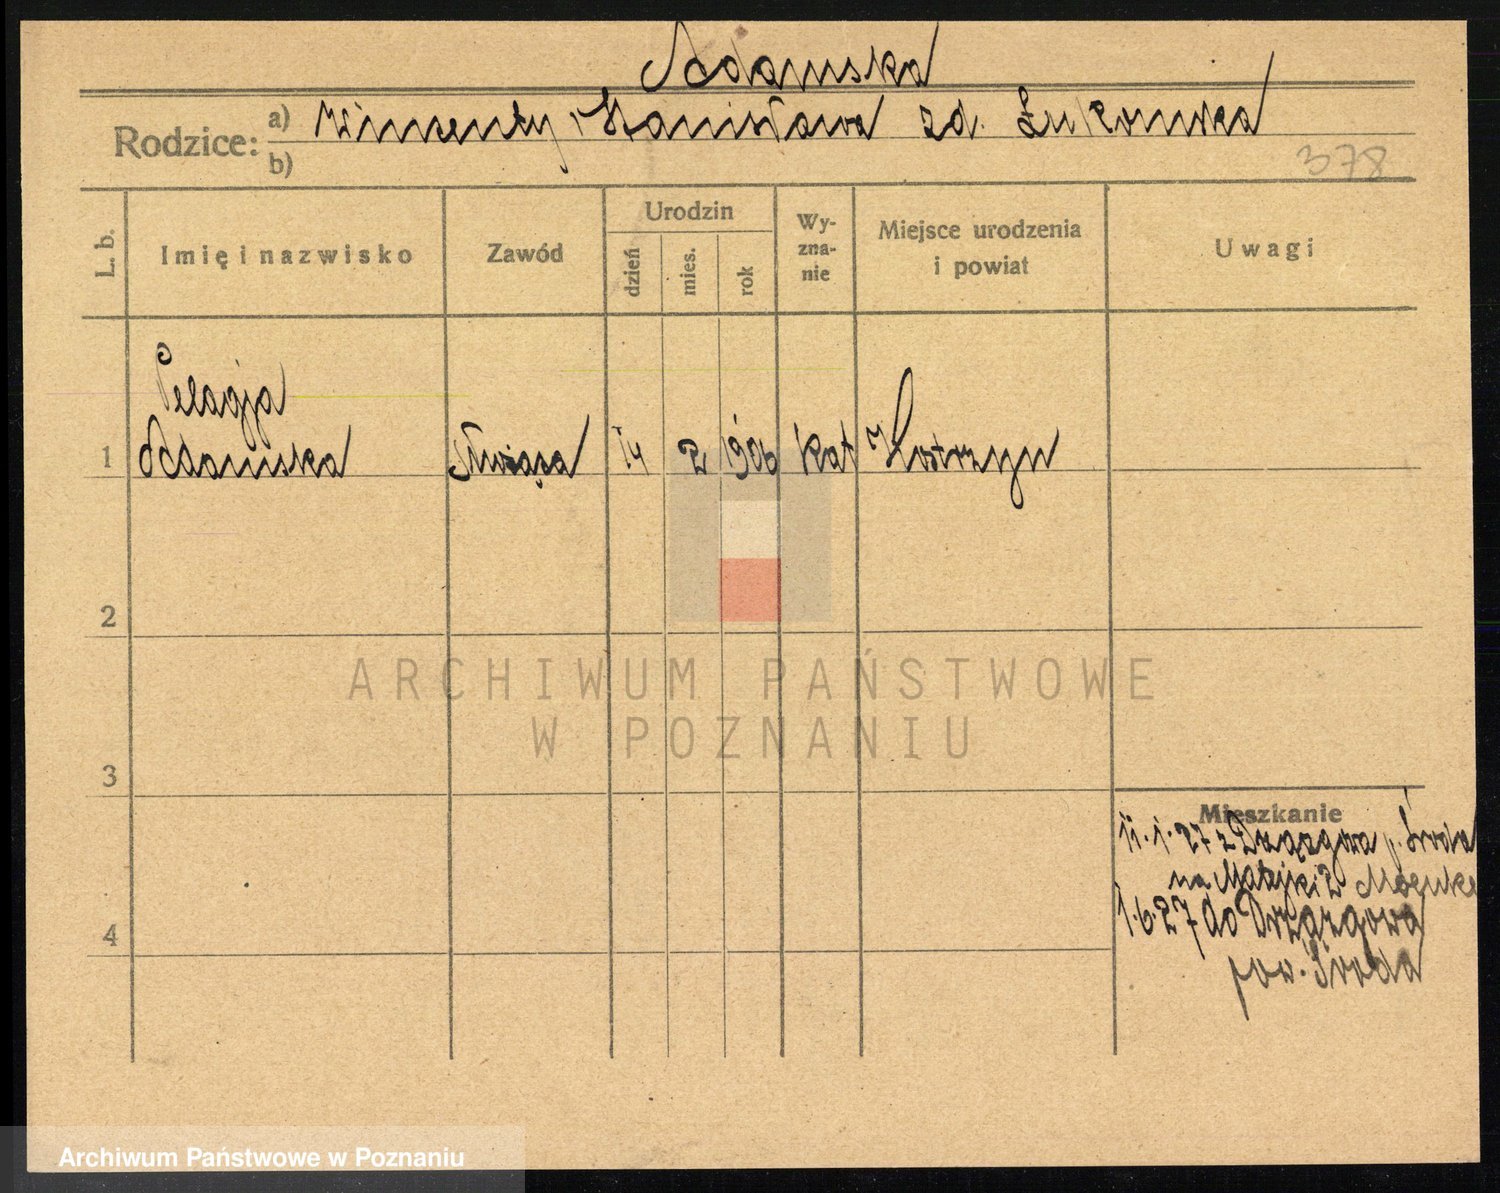 Adamska
Rodzice: a) Wincenty i Stanisława zd. Łukomska
b)
378
L. b.
Imię i nazwisko
Zawód
Urodzin
dzień
mies.
rok
Wy-
zna-
nie
Miejsce urodzenia
i powiat
Uwagi
Pelagja
1 Adamska Służąca 14 2 1906 kat Kostrzyn
2
ARCHIWUM PAŃSTWOWE
W POZNANIU
3
Mieszkanie
11.1.27 z Drzązgowa p. Środa
na Matejki 2
4
1.6.27 do Drzązgowa
pow. Środa
Archiwum Państwowe w Poznaniu